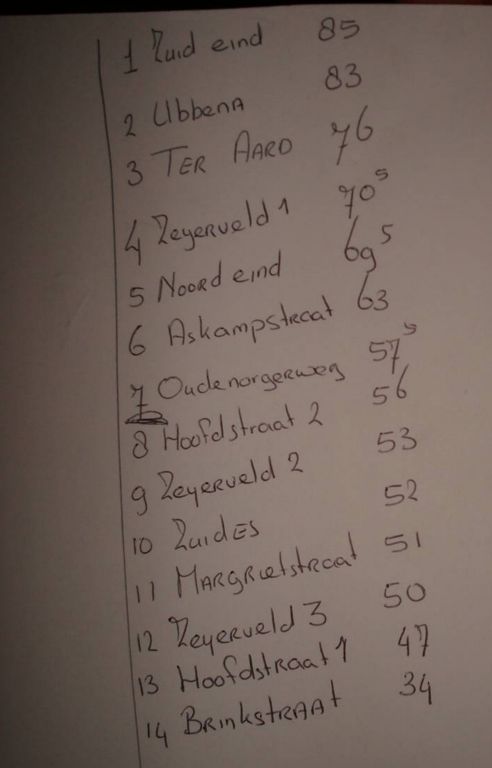 1 Zuid eind 85
2 Ubbena 83
3 TER AARD 76
4 Zeyerveld 1 70⁵
5 Noord eind 69⁵
6 Askampstraat 63
7 Oudenorgerweg 57⁵
8 Hoofdstraat 2 56
9 Zeyerveld 2 53
10 ZuidES 52
11 MARGRietstraat 51
12 Zeyerveld 3 50
13 Hoofdstraat 1 47
14 BRINKSTRAAt 34